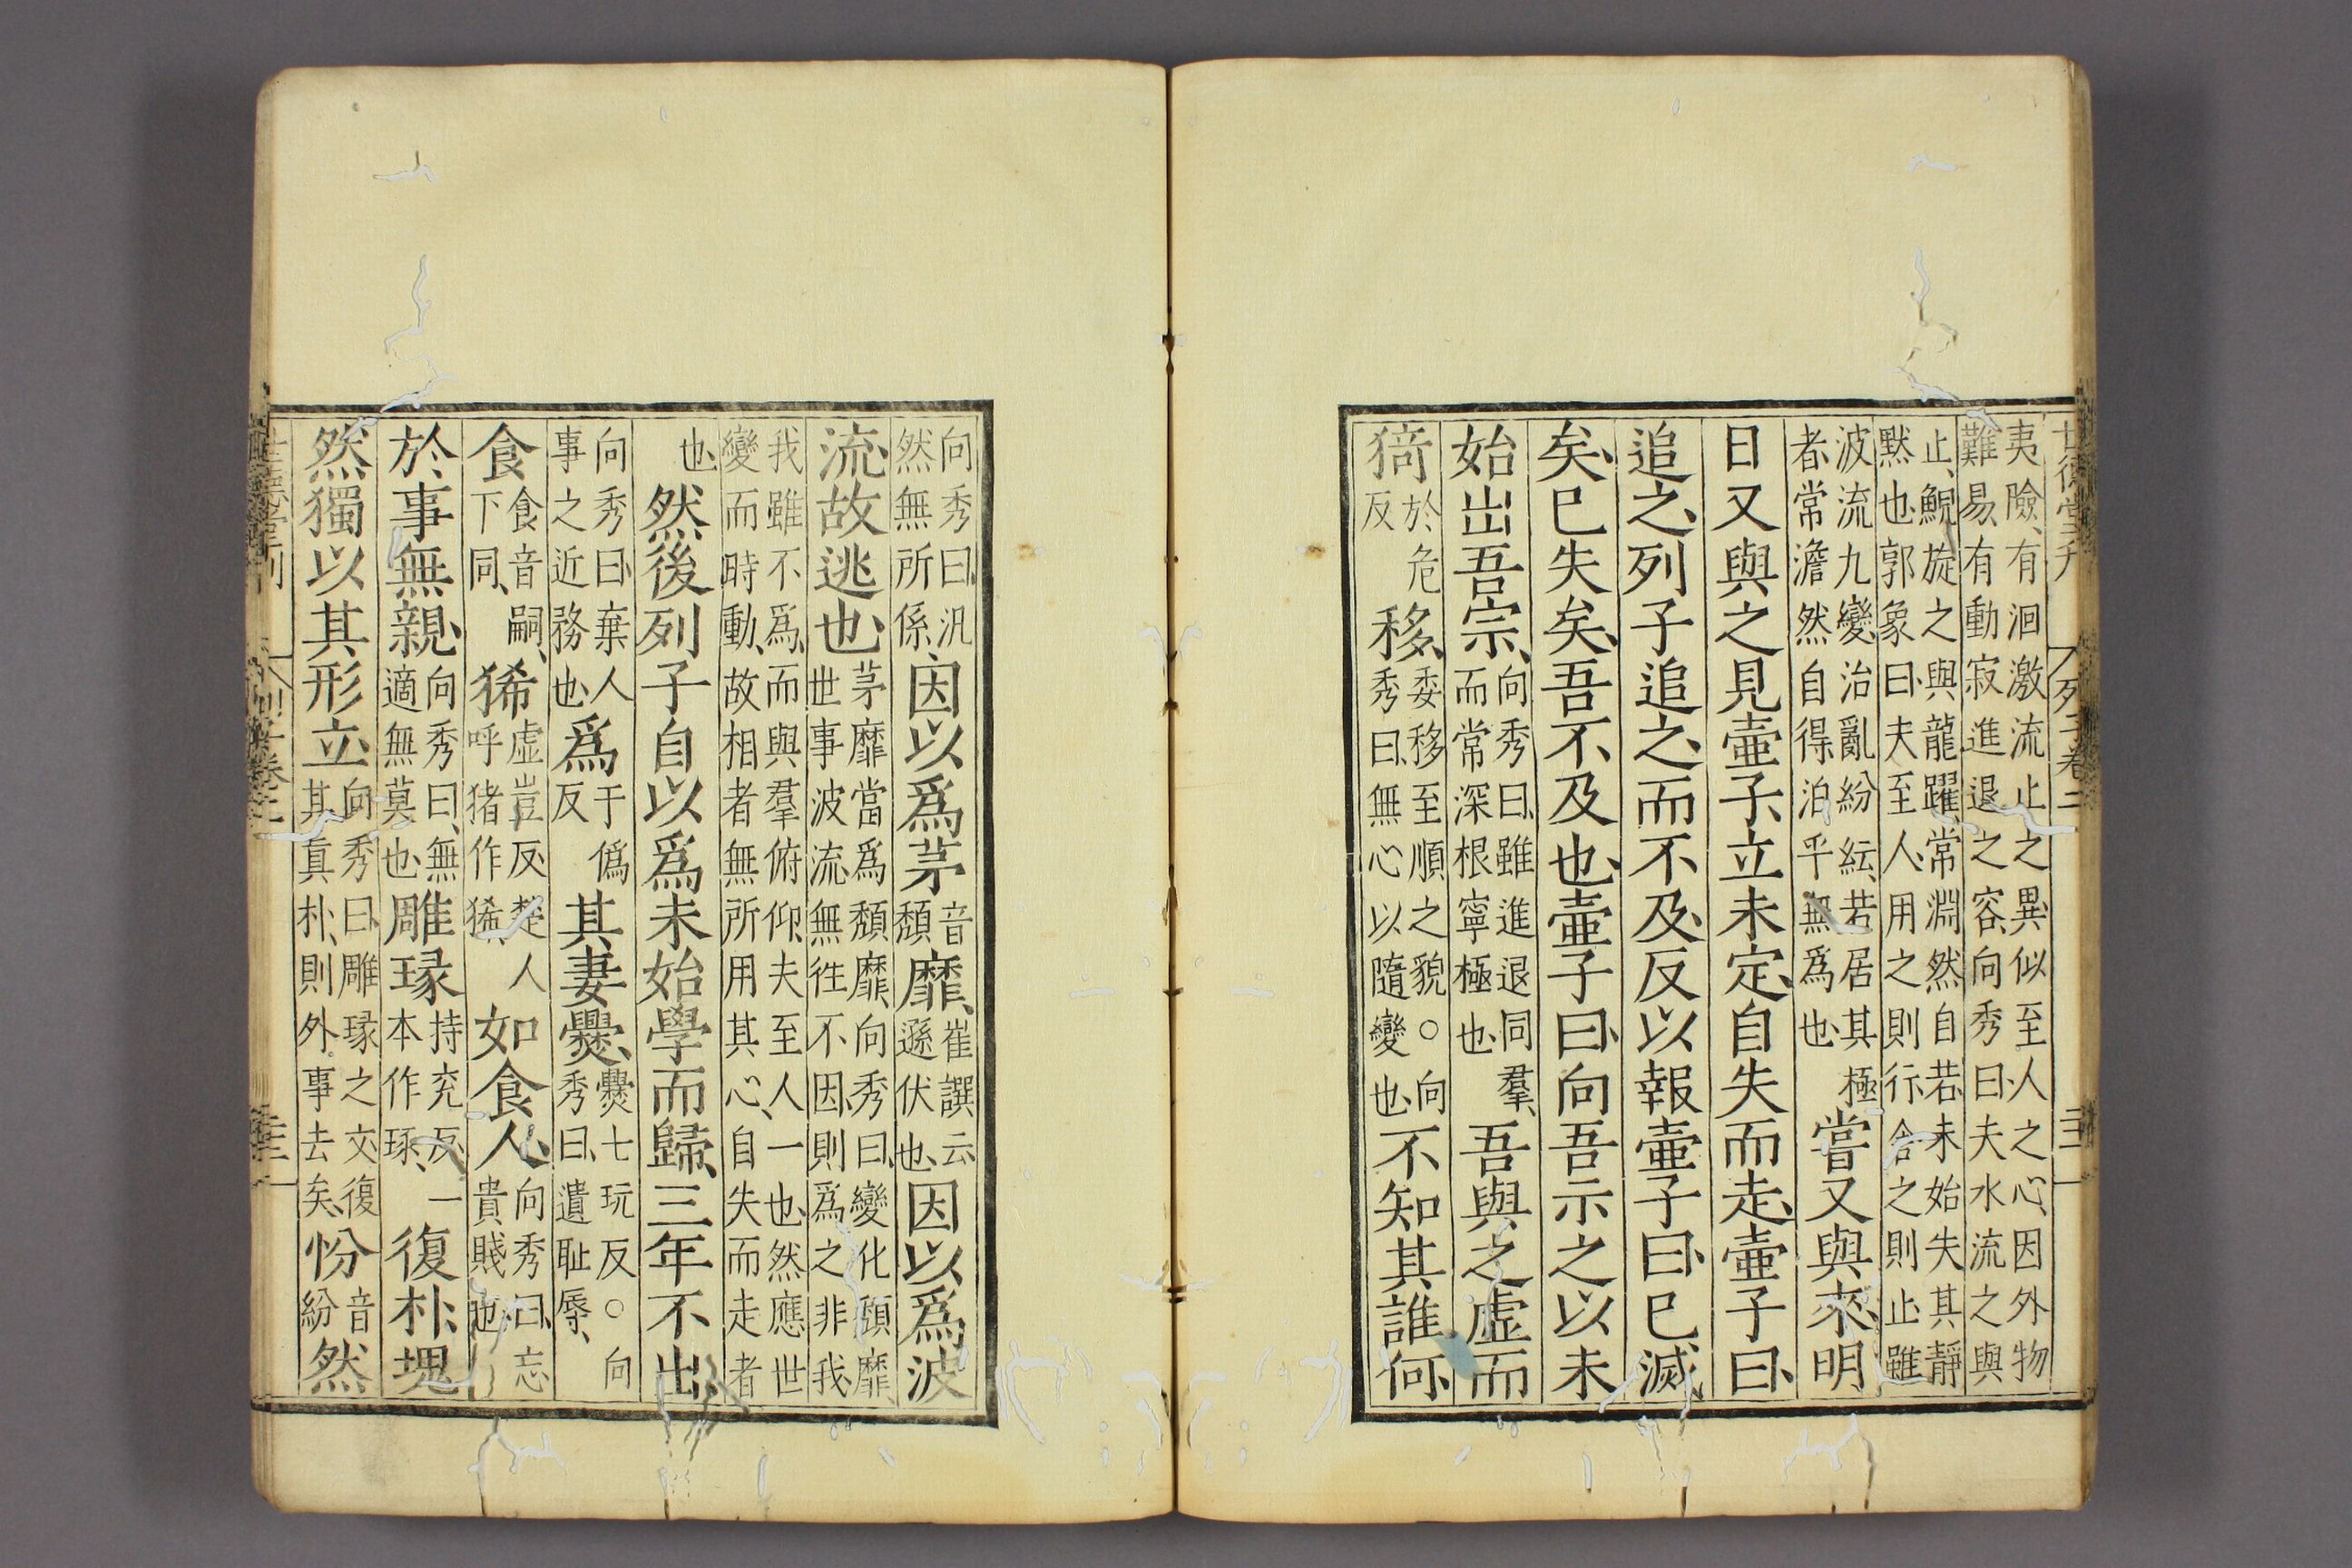 列子卷二
夷險、有洄激流止之異似至人之心、因外物
難易、有動寂進退之容、向秀曰夫水流之與
止、鯢旋之與龍躍、常淵然自若、未始失其靜
默也、郭象曰、夫至人、用之則行、舍之則止、雖
波流九變、治亂紛紜、若居其極
者、常澹然自得泊乎無爲也、嘗又與來、明
日又與之見壷子、立未定、自失而走、壷子曰、
追之、列子追之、而不及、反以報壷子曰、已滅
矣、已失矣、吾不及也、壷子曰、向吾示之以未
始出吾宗、向秀曰、雖進退同羣、而常深根寧極也、吾與之虛而
猗於危反移、委移至順之貌○向秀曰、無心以隨變也、不知其誰何、
向秀曰、汎然無所係、因以爲茅音頹靡、崔譔云遜伏也、因以爲波
流、故逃也、茅靡當爲頹靡、向秀曰、變化頹靡、世事波流、無往不因、則爲之非我、
我雖不爲、而與羣俯仰、夫至人一也、然應世
變而時動、故相者無所用其心、自失而走者
也、然後列子自以爲未始學而歸、三年不出、
向秀曰、棄人事之近務也、爲于僞反其妻爨、爨七玩反○向秀曰、遺耻辱、
食食音嗣、下同、狶虛豈反、楚人呼猪作狶、如食人、向秀曰、忘貴賤也、
於事無親、向秀曰、無適無莫也、雕瑑持兖反、一本作琢、復朴、塊
然獨以其形立、向秀曰、雕瑑之文、復其眞朴、則外事去矣、㤋音紛然